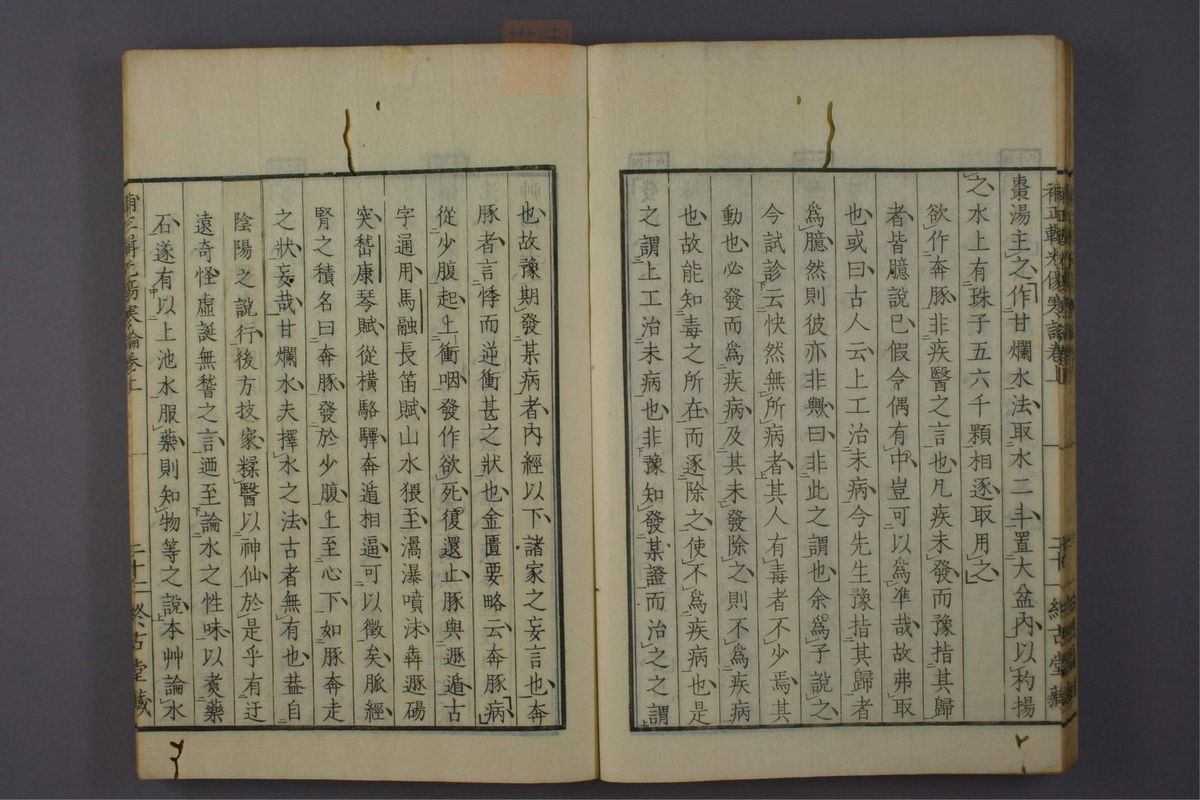 棗湯主之作甘爛水法取水二斗置大盆內以杓揚
之水上有珠子五六千顆相逐取用之
欲作奔豚非疾醫之言也凡疾未發而豫指其歸
者皆臆說已假令偶有中豈可以為準哉故弗取
也或曰古人云上工治未病今先生豫指其歸者
爲臆然則彼亦非歟曰非此之謂也余爲子說之
今試診云快然無所病者其人有毒者不少焉其
動也必發而爲疾病及其未發除之則不爲疾病
也故能知毒之所在而逐除之使不爲疾病也是
之謂上工治未病也非豫知發某證而治之之謂
也故豫期發某病者內經以下諸家之妄言也奔
豚者言悸而逆衝甚之狀也金匱要略云奔豚病
從少腹起上衝咽發作欲死復還止豚與遯遁古
字通用馬融長笛賦山水猥至瀑噴沫犇遯碭
突嵆康琴賦從橫駱驛奔遁相逼可以徵矣脈經
腎之積名曰奔豚發於少腹上至心下如豚奔走
之狀妄哉甘爛水夫擇水之法古者無有也葢自
陰陽之說行後方技家糅醫以神仙於是乎有迂
遠奇怪虛誕無稽之言迺至論水之性味以煑藥
石遂有以上池水服藥則知物等之說本艸論水
終古堂藏